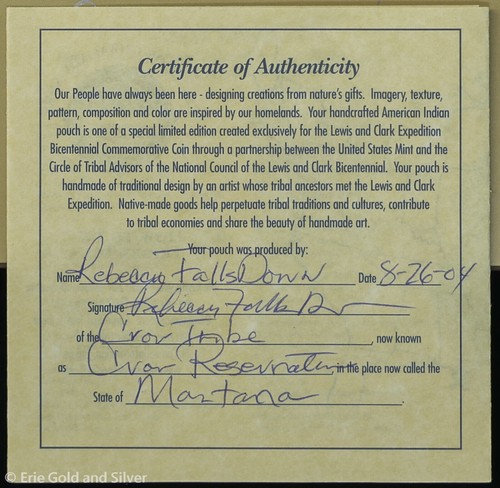 Certificate of Authenticity
Our People have always been here - designing creations from nature's gifts. Imagery, texture,
pattern, composition and color are inspired by our homelands. Your handcrafted American Indian
pouch is one of a special limited edition created exclusively for the Lewis and Clark Expedition
Bicentennial Commemorative Coin through a partnership between the United States Mint and the
Circle of Tribal Advisors of the National Council of the Lewis and Clark Bicentennial. Your pouch is
handmade of traditional design by an artist whose tribal ancestors met the Lewis and Clark
Expedition. Native-made goods help perpetuate tribal traditions and cultures, contribute
to tribal economies and share the beauty of handmade art.
Your pouch was produced by:
Name Rebecca Falls Down Date 8-26-04
Signature Rebecca Falls Down
of the Crow Tribe, now known
as Crow Reservation, in the place now called the
State of Montana.
© Erie Gold and Silver